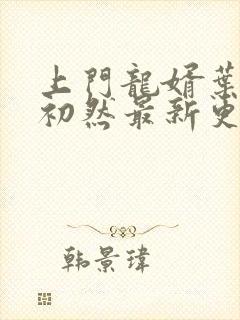 上門龍婿葉
初然最新更
韩景瑋